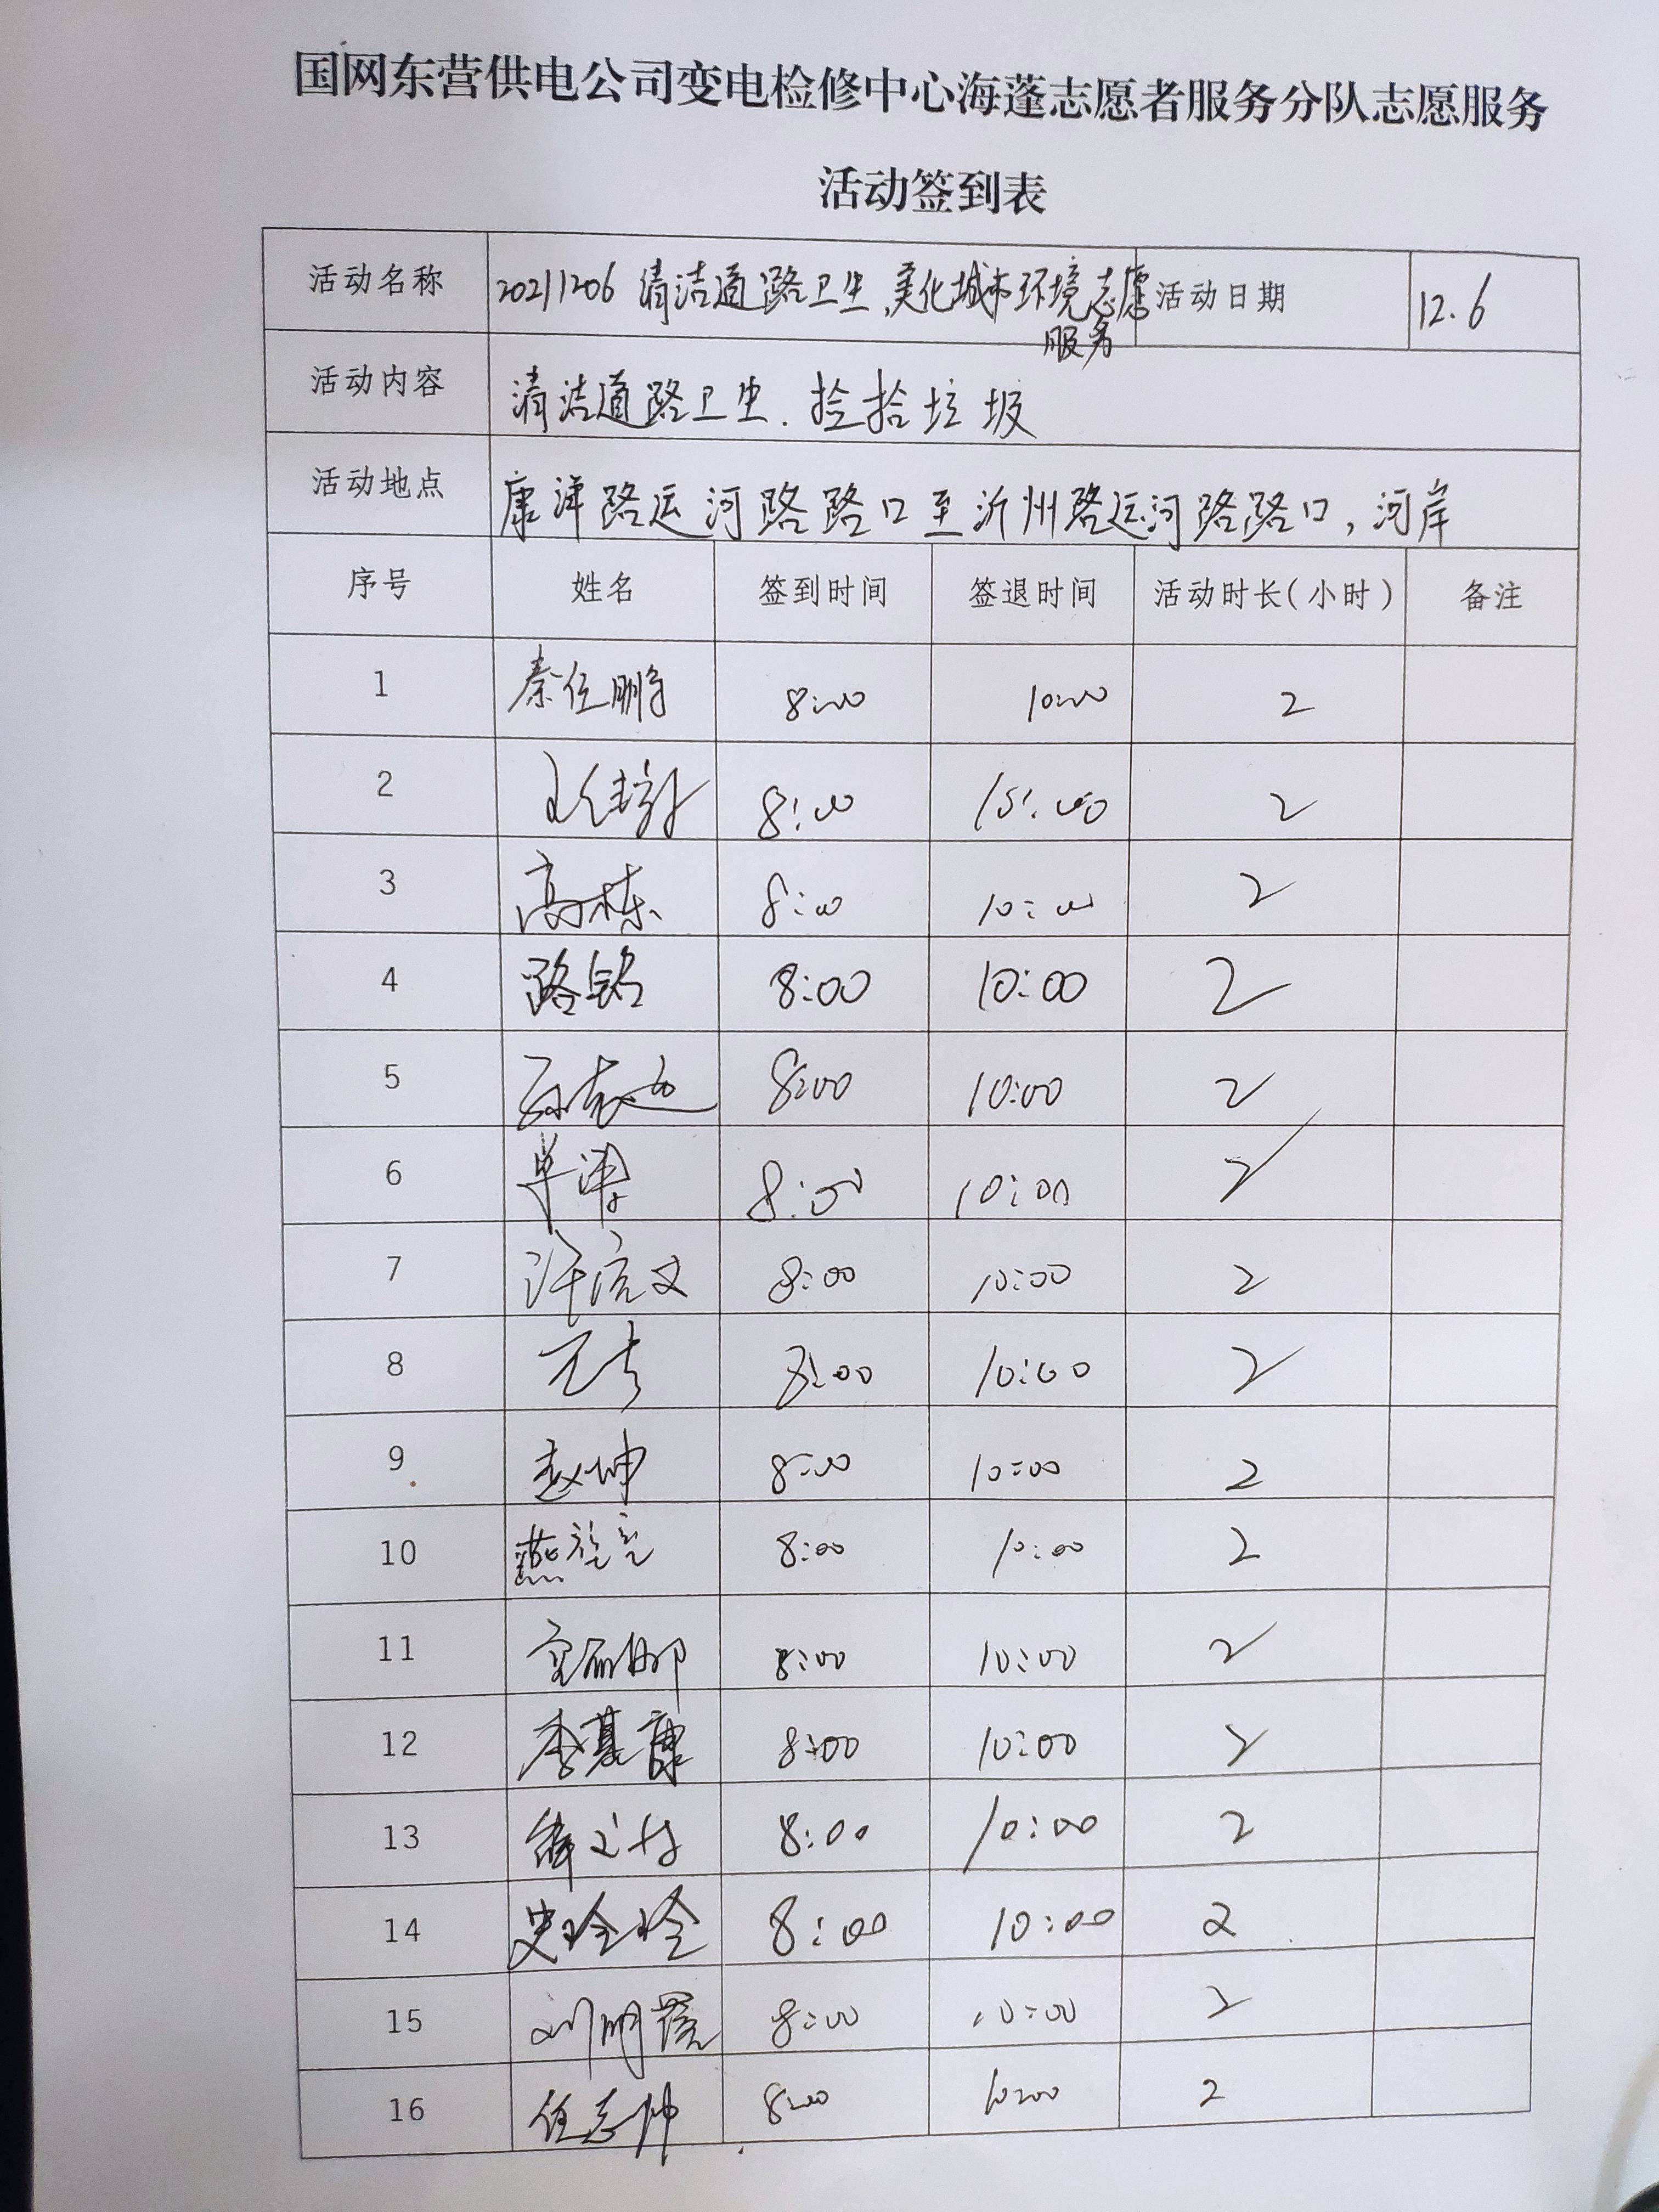 国网东营供电公司变电检修中心海蓬志愿者服务分队志愿服务
活动签到表
活动名称 20211206 清洁道路卫生,美化城市环境志愿服务 活动日期 12.6
活动内容 清洁道路卫生.捡拾垃圾
活动地点 康洋路运河路路口至沂州路运河路路口,河岸
序号 姓名 签到时间 签退时间 活动时长(小时) 备注
1 秦位鹏 8:00 10:00 2
2 8:00 10:00 2
3 高栋 8:00 10:00 2
4 路铭 8:00 10:00 2
5 8:00 10:00 2
6 单涛 8:00 10:00 2
7 8:00 10:00 2
8 8:00 10:00 2
9 赵坤 8:00 10:00 2
10 8:00 10:00 2
11 8:00 10:00 2
12 李基康 8:00 10:00 2
13 8:00 10:00 2
14 史玲玲 8:00 10:00 2
15 8:00 10:00 2
16 任志帅 8:00 10:00 2